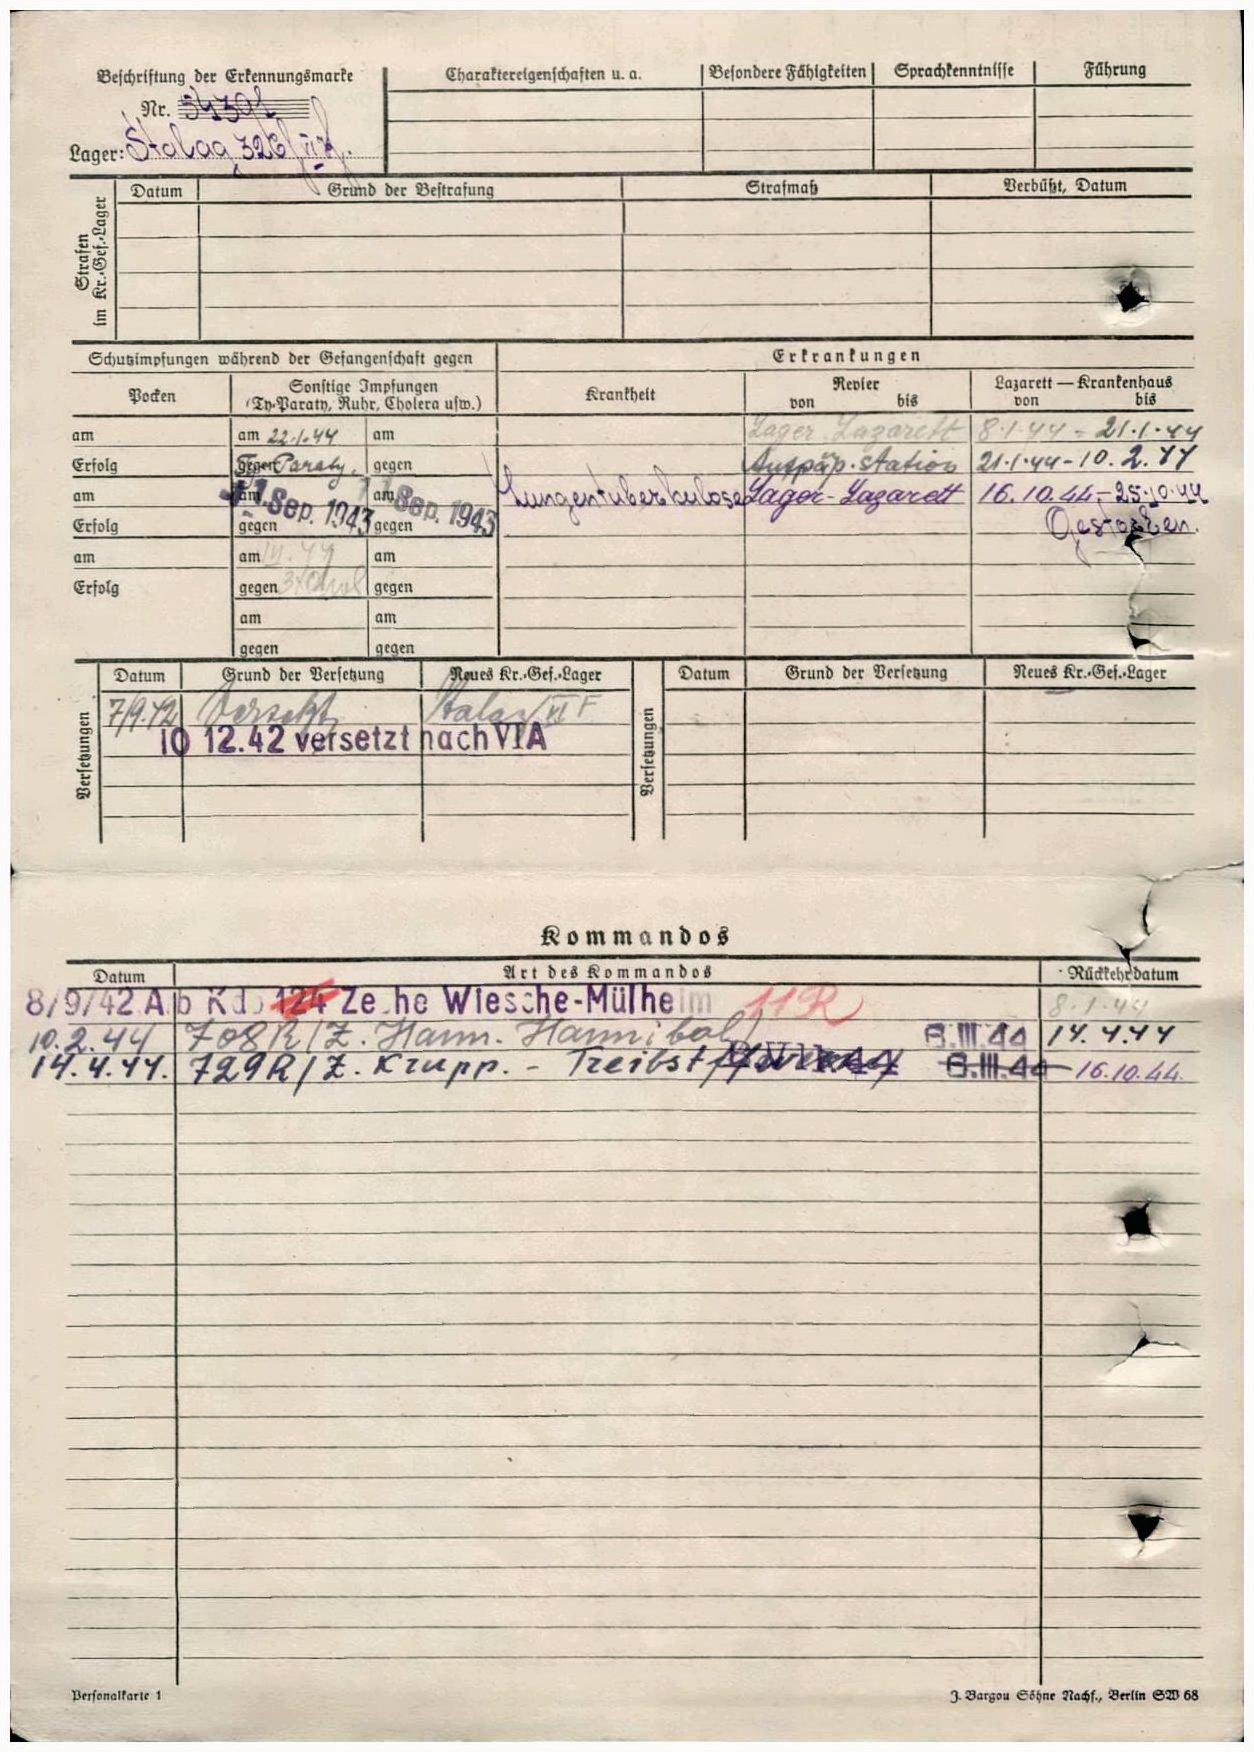 Beschriftung der Erkennungsmarke
Nr. 54391
Lager: Stalag 326/VI K.
Charaktereigenschaften u. a. Besondere Fähigkeiten Sprachkenntnisse Führung
Strafen im Kr.-Gef.-Lager
Datum Grund der Bestrafung Strafmaß Verbüßt, Datum
Schutzimpfungen während der Gefangenschaft gegen Erkrankungen
Pocken Sonstige Impfungen (Ty-Paraty, Ruhr, Cholera usw.) Krankheit Revier von bis Lazarett — Krankenhaus von bis
am am 22.1.44 am Lager Lazarett 8.1.44 - 21.1.44
Erfolg gegen Ty Paraty. gegen Aufpäp. station 21.1.44-10.2.44
am am 1. Sep. 1943 am 1. Sep. 1943 Lungentuberkulose Lager-Lazarett 16.10.44-25.10.44
Erfolg gegen gegen Gestorben.
am am am
Erfolg gegen gegen
am am
gegen gegen
Versetzungen
Datum Grund der Versetzung Neues Kr.-Gef.-Lager
7/9.42 Versetzt Stalag VI F
10 12.42 versetzt nach VIA
Versetzungen
Datum Grund der Versetzung Neues Kr.-Gef.-Lager
Kommandos
Datum Art des Kommandos Rückkehrdatum
8/9/42 Ab Kdo 124 Zeche Wiesche-Mülheim 11R 8.1.44
10.2.44 708R/Z. Hann. Hannibal 8.III.44 14.4.44
14.4.44. 729R/Z. Krupp. - Treibst 8.III.44 16.10.44.
Personalkarte 1
J. Bargou Söhne Nachf., Berlin SW 68